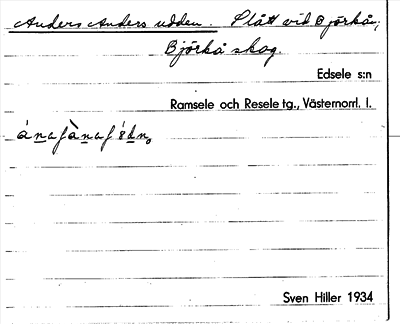 Anders Anders udden. Slått vid Björkån,
Björkå skog.
Edsele s:n
Ramsele och Resele tg., Västernorrl. l.
Sven Hiller 1934